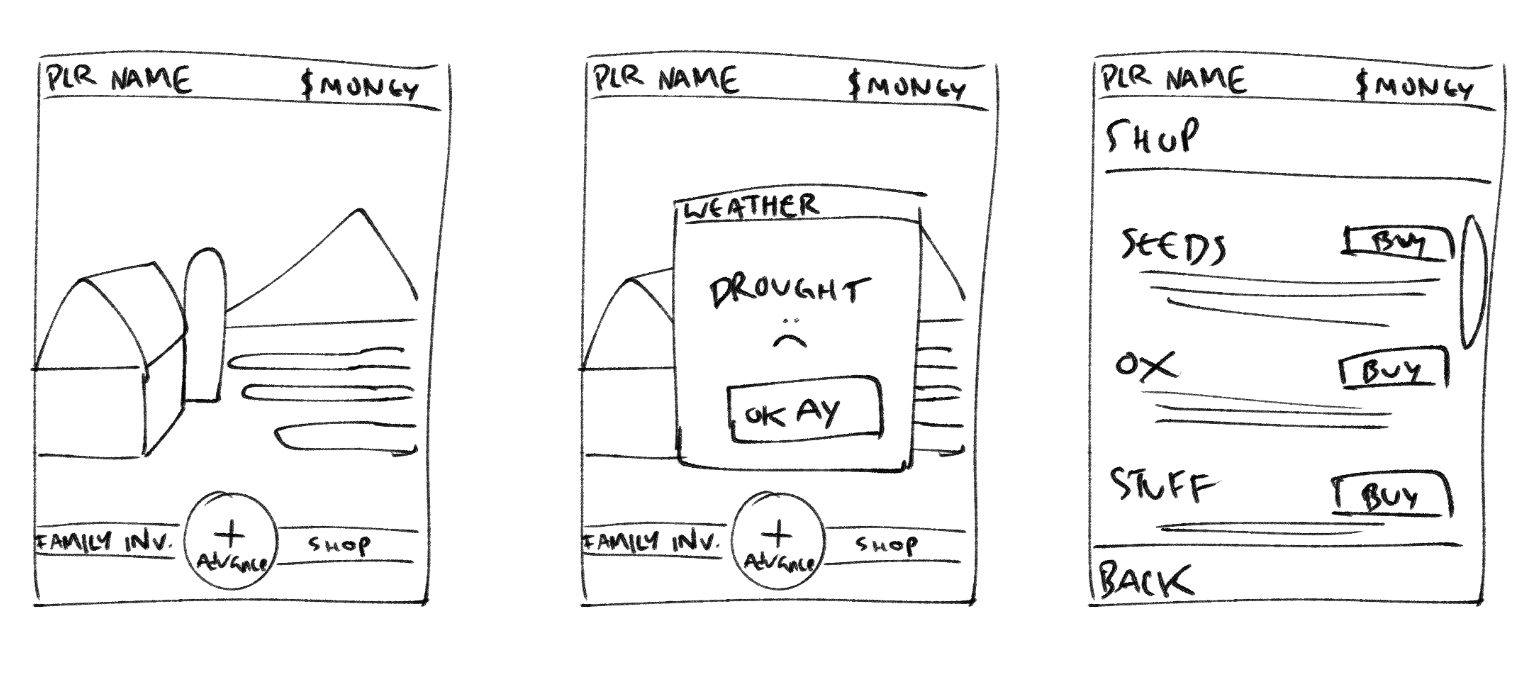 PLR NAME $MONEY
FAMILY INV. + Advance SHOP
PLR NAME $MONEY
WEATHER
DROUGHT
OKAY
FAMILY INV. + Advance SHOP
PLR NAME $MONEY
SHOP
SEEDS BUY
OX BUY
STUFF BUY
BACK